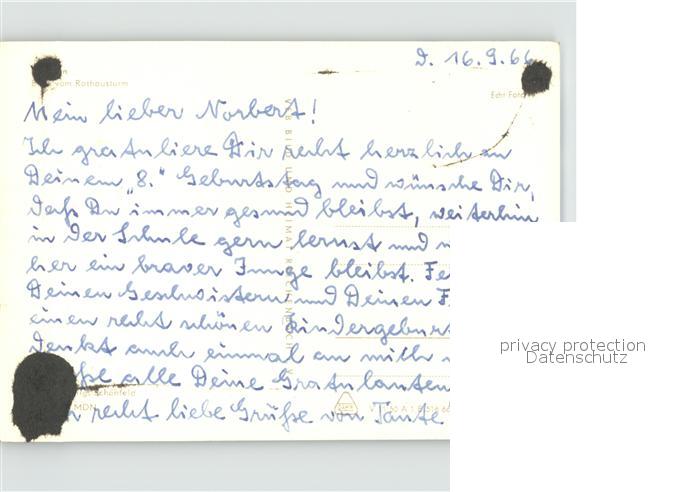 D. 16.9.66
vom Rathausturm
Echt Foto
Mein lieber Norbert!
Ich gratuliere Dir recht herzlich zu
Deinem „8.“ Geburtstag und wünsche Dir,
daß Du immer gesund bleibst, weiterhin
in der Schule gern lernst und
her ein braver Junge bleibst. Fe
Deinen Geschwistern und Deinen F
einen recht schönen Kindergeburt
Denkt auch einmal an mich
alle Deine Gratulanten
recht liebe Grüße von Tante
BILD UND HEIMAT REICHENBACH
MDN
privacy protection
Datenschutz